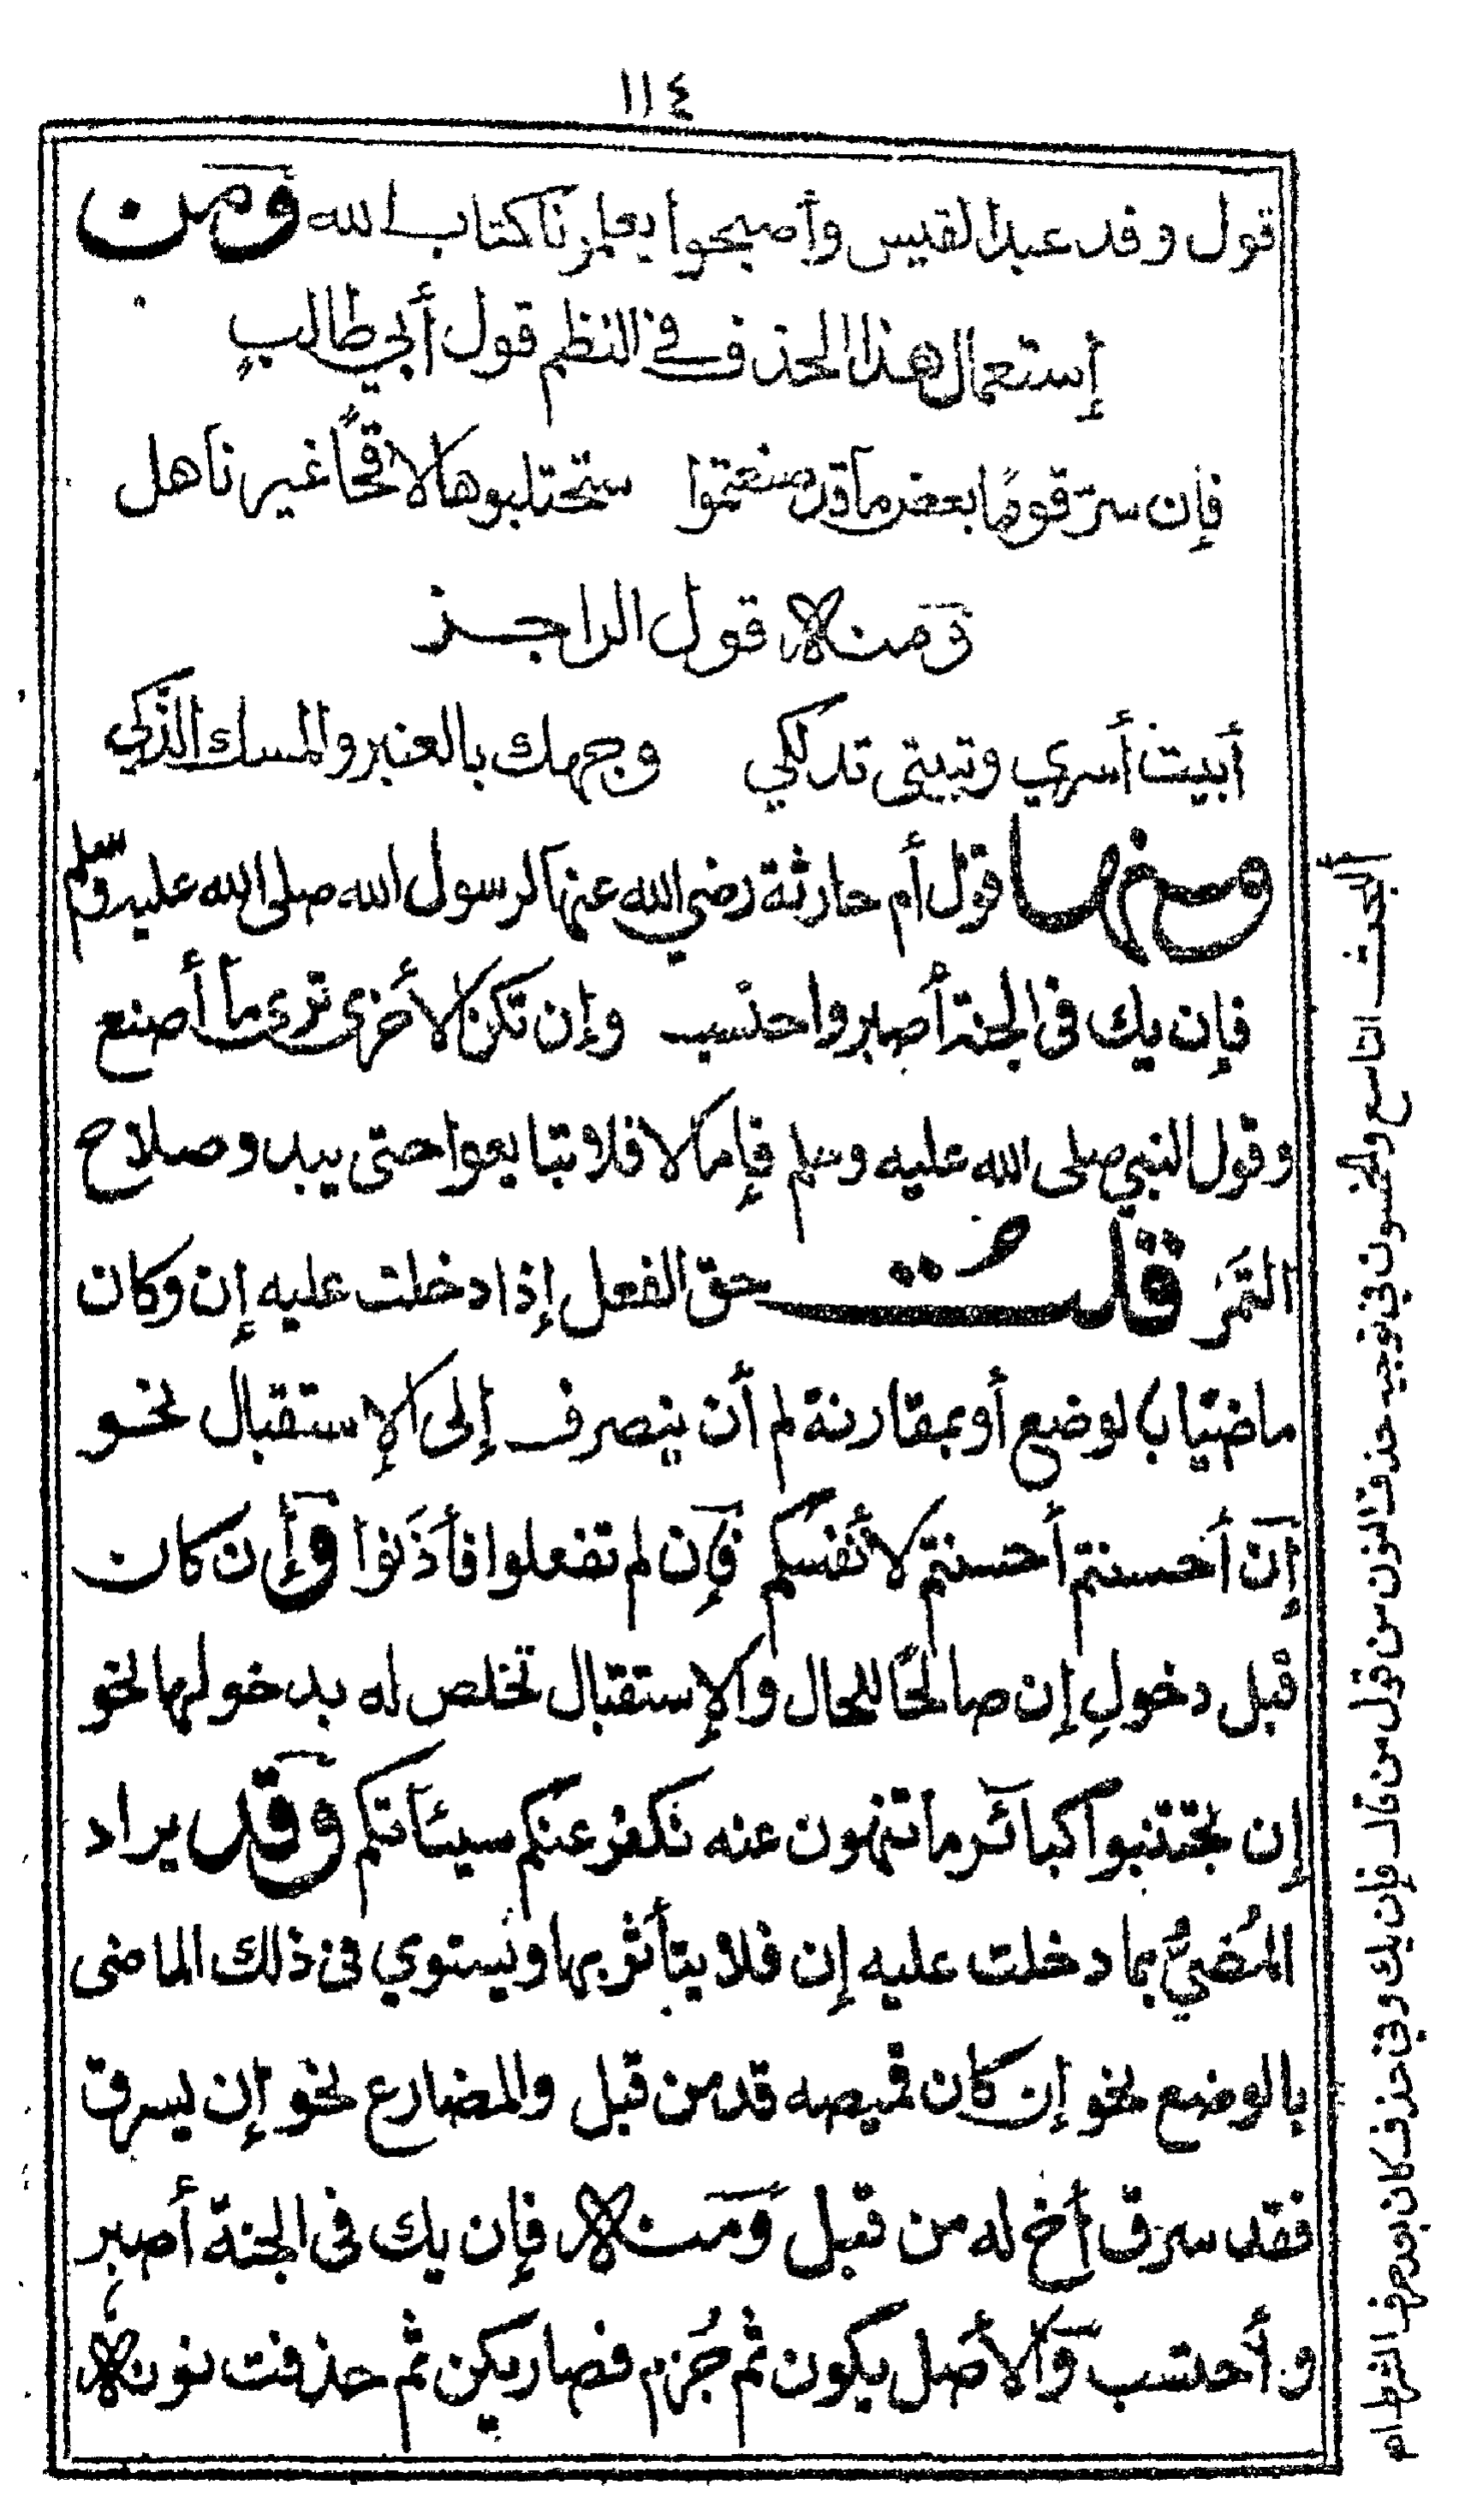 ١١٤
قول وفد عبد القيس وأصبحوا يعلمونا كتاب الله ومن
إستعمال هذا الحذف في النظم قول أبي طالبٍ
فإن سرّ قومًا بعض ما قد صنعتموا ستحتلبوها لاقحًا غير ناهل
ومنه قول الراجز
أبيت أسري وتبيتى تدلكي وجهك بالعنبر والمسك الذكي
ومنها قول أم حارثة رضي الله عنها لرسول الله صلى الله عليه وسلم
فإن يك فى الجنة أصبر واحتسب وإن تكن الأخرى ترى ما أصنع
وقول النبي صلى الله عليه وسلم فإما لا فلا تتبايعوا حتى يبدو صلاح
الثمر قلت حق الفعل إذا دخلت عليه إن وكان
ماضيًا بالوضع أو بمقارنة لم أن ينصرف إلى الإستقبال نحو
إن أحسنتم أحسنتم لأنفسكم فإن لم تفعلوا فأذنوا وإن كان
قبل دخولِ إن صالحًا للحال والإستقبال تخلص له بدخولها نحو
إن تجتنبوا كبائر ما تنهون عنه نكفر عنكم سيئاتكم وقد يراد
المُضيُّ بما دخلت عليه إن فلا يتأثر بها ويستوي فى ذلك الماضى
بالوضع نحو إن كان قميصه قد من قبل والمضارع نحو إن يسرق
فقد سرق أخ له من قبل ومنه فإن يك فى الجنة أصبر
وأحتسب والأصل يكون ثم جُزم فصار يكن ثم حذفت نونه
ألبحث التاسع والخمسون في توجيه حذف النون من قول من قال فإن يك وفي حذف كان بعد حرف الشرط ام